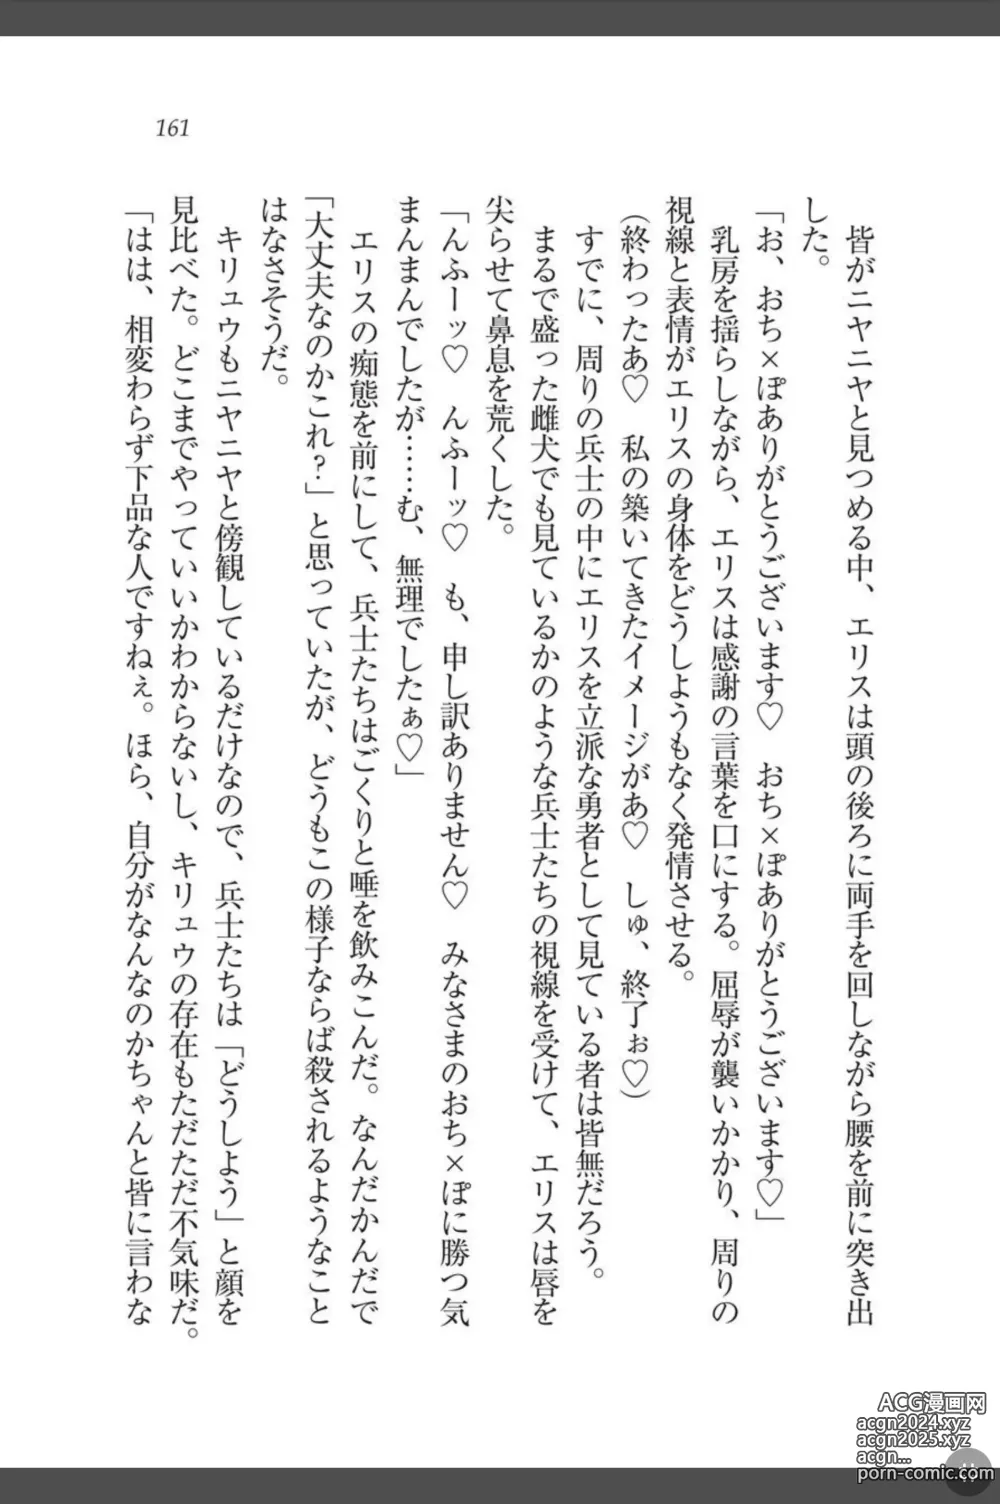 161
皆がニヤニヤと見つめる中、エリスは頭の後ろに両手を回しながら腰を前に突き出
した。
「お、おち×ぽありがとうございます♡　おち×ぽありがとうございます♡」
乳房を揺らしながら、エリスは感謝の言葉を口にする。屈辱が襲いかかり、周りの
視線と表情がエリスの身体をどうしようもなく発情させる。
（終わったあ♡　私の築いてきたイメージがあ♡　しゅ、終了ぉ♡）
すでに、周りの兵士の中にエリスを立派な勇者として見ている者は皆無だろう。
まるで盛った雌犬でも見ているかのような兵士たちの視線を受けて、エリスは唇を
尖らせて鼻息を荒くした。
「んふーッ♡　んふーッ♡　も、申し訳ありません♡　みなさまのおち×ぽに勝つ気
まんまんでしたが……む、無理でしたぁ♡」
エリスの痴態を前にして、兵士たちはごくりと唾を飲みこんだ。なんだかんだで
「大丈夫なのかこれ？」と思っていたが、どうもこの様子ならば殺されるようなこと
はなさそうだ。
キリュウもニヤニヤと傍観しているだけなので、兵士たちは「どうしよう」と顔を
見比べた。どこまでやっていいかわからないし、キリュウの存在もただただ不気味だ。
「はは、相変わらず下品な人ですねぇ。ほら、自分がなんなのかちゃんと皆に言わな
ACG漫画网
acgn2024.xyz
acgn2025.xyz
acgn...
porn-comic.com